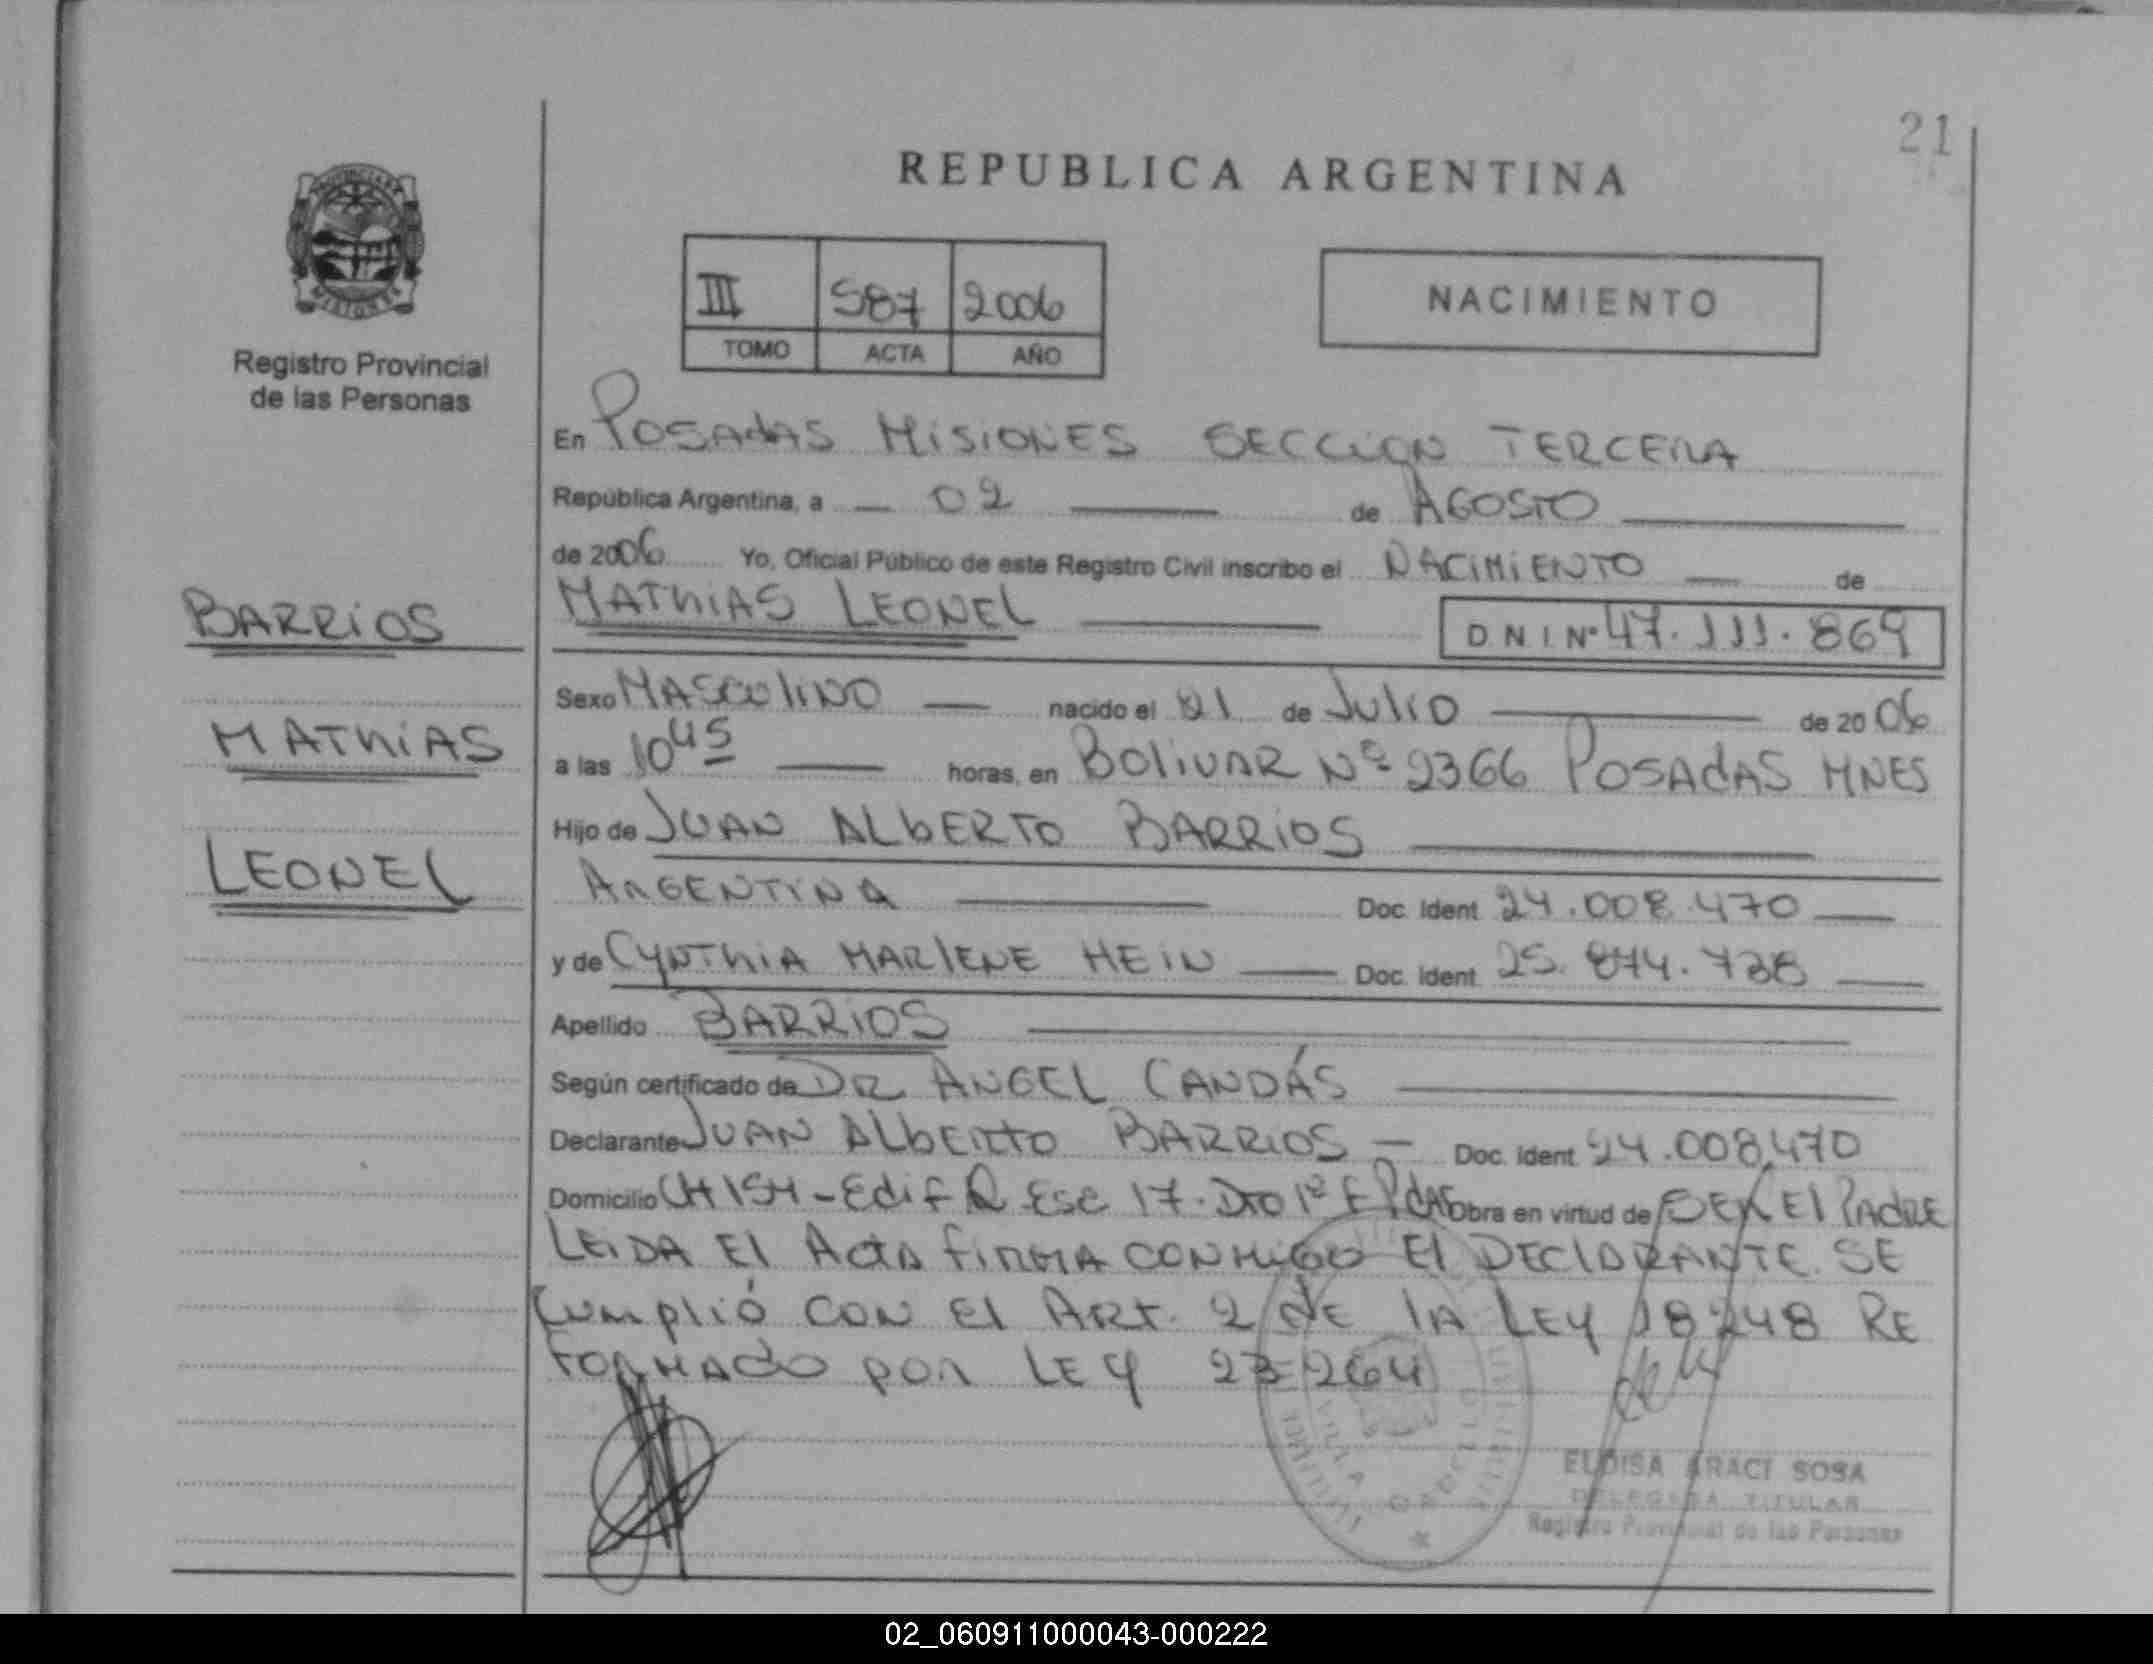 21
REPUBLICA ARGENTINA
III 587 2006
TOMO ACTA AÑO
NACIMIENTO
Registro Provincial
de las Personas
BARRIOS
MATHIAS
LEONEL
En POSADAS MISIONES SECCION TERCERA
República Argentina, a 02 de AGOSTO
de 2006 Yo, Oficial Público de este Registro Civil inscribo el NACIMIENTO de
MATHIAS LEONEL D N I Nº 47.111.869
Sexo MASCULINO nacido el 21 de JULIO de 20 06
a las 10 45 horas, en BOLIVAR Nº 2366 POSADAS MNES
Hijo de JUAN ALBERTO BARRIOS
ARGENTINA Doc. Ident 24.008.470
y de CYNTHIA MARLENE HEIN Doc. Ident 25.874.738
Apellido BARRIOS
Según certificado de DR ANGEL CANDÁS
Declarante JUAN ALBERTO BARRIOS Doc. Ident 24.008.470
Domicilio CH 154 - Edif Q Esc 17. Dto 1º E Pdas Obra en virtud de SER El PADRE
LEIDA El Acta firma conmigo El DEClARANTE. SE
Cumplió CON El ART. 2 de lA LEY 18248 RE
FORMADO por LEY 23264
ELOISA ARACI SOSA
DELEGADA TITULAR
Registro Provincial de las Personas
02_060911000043-000222